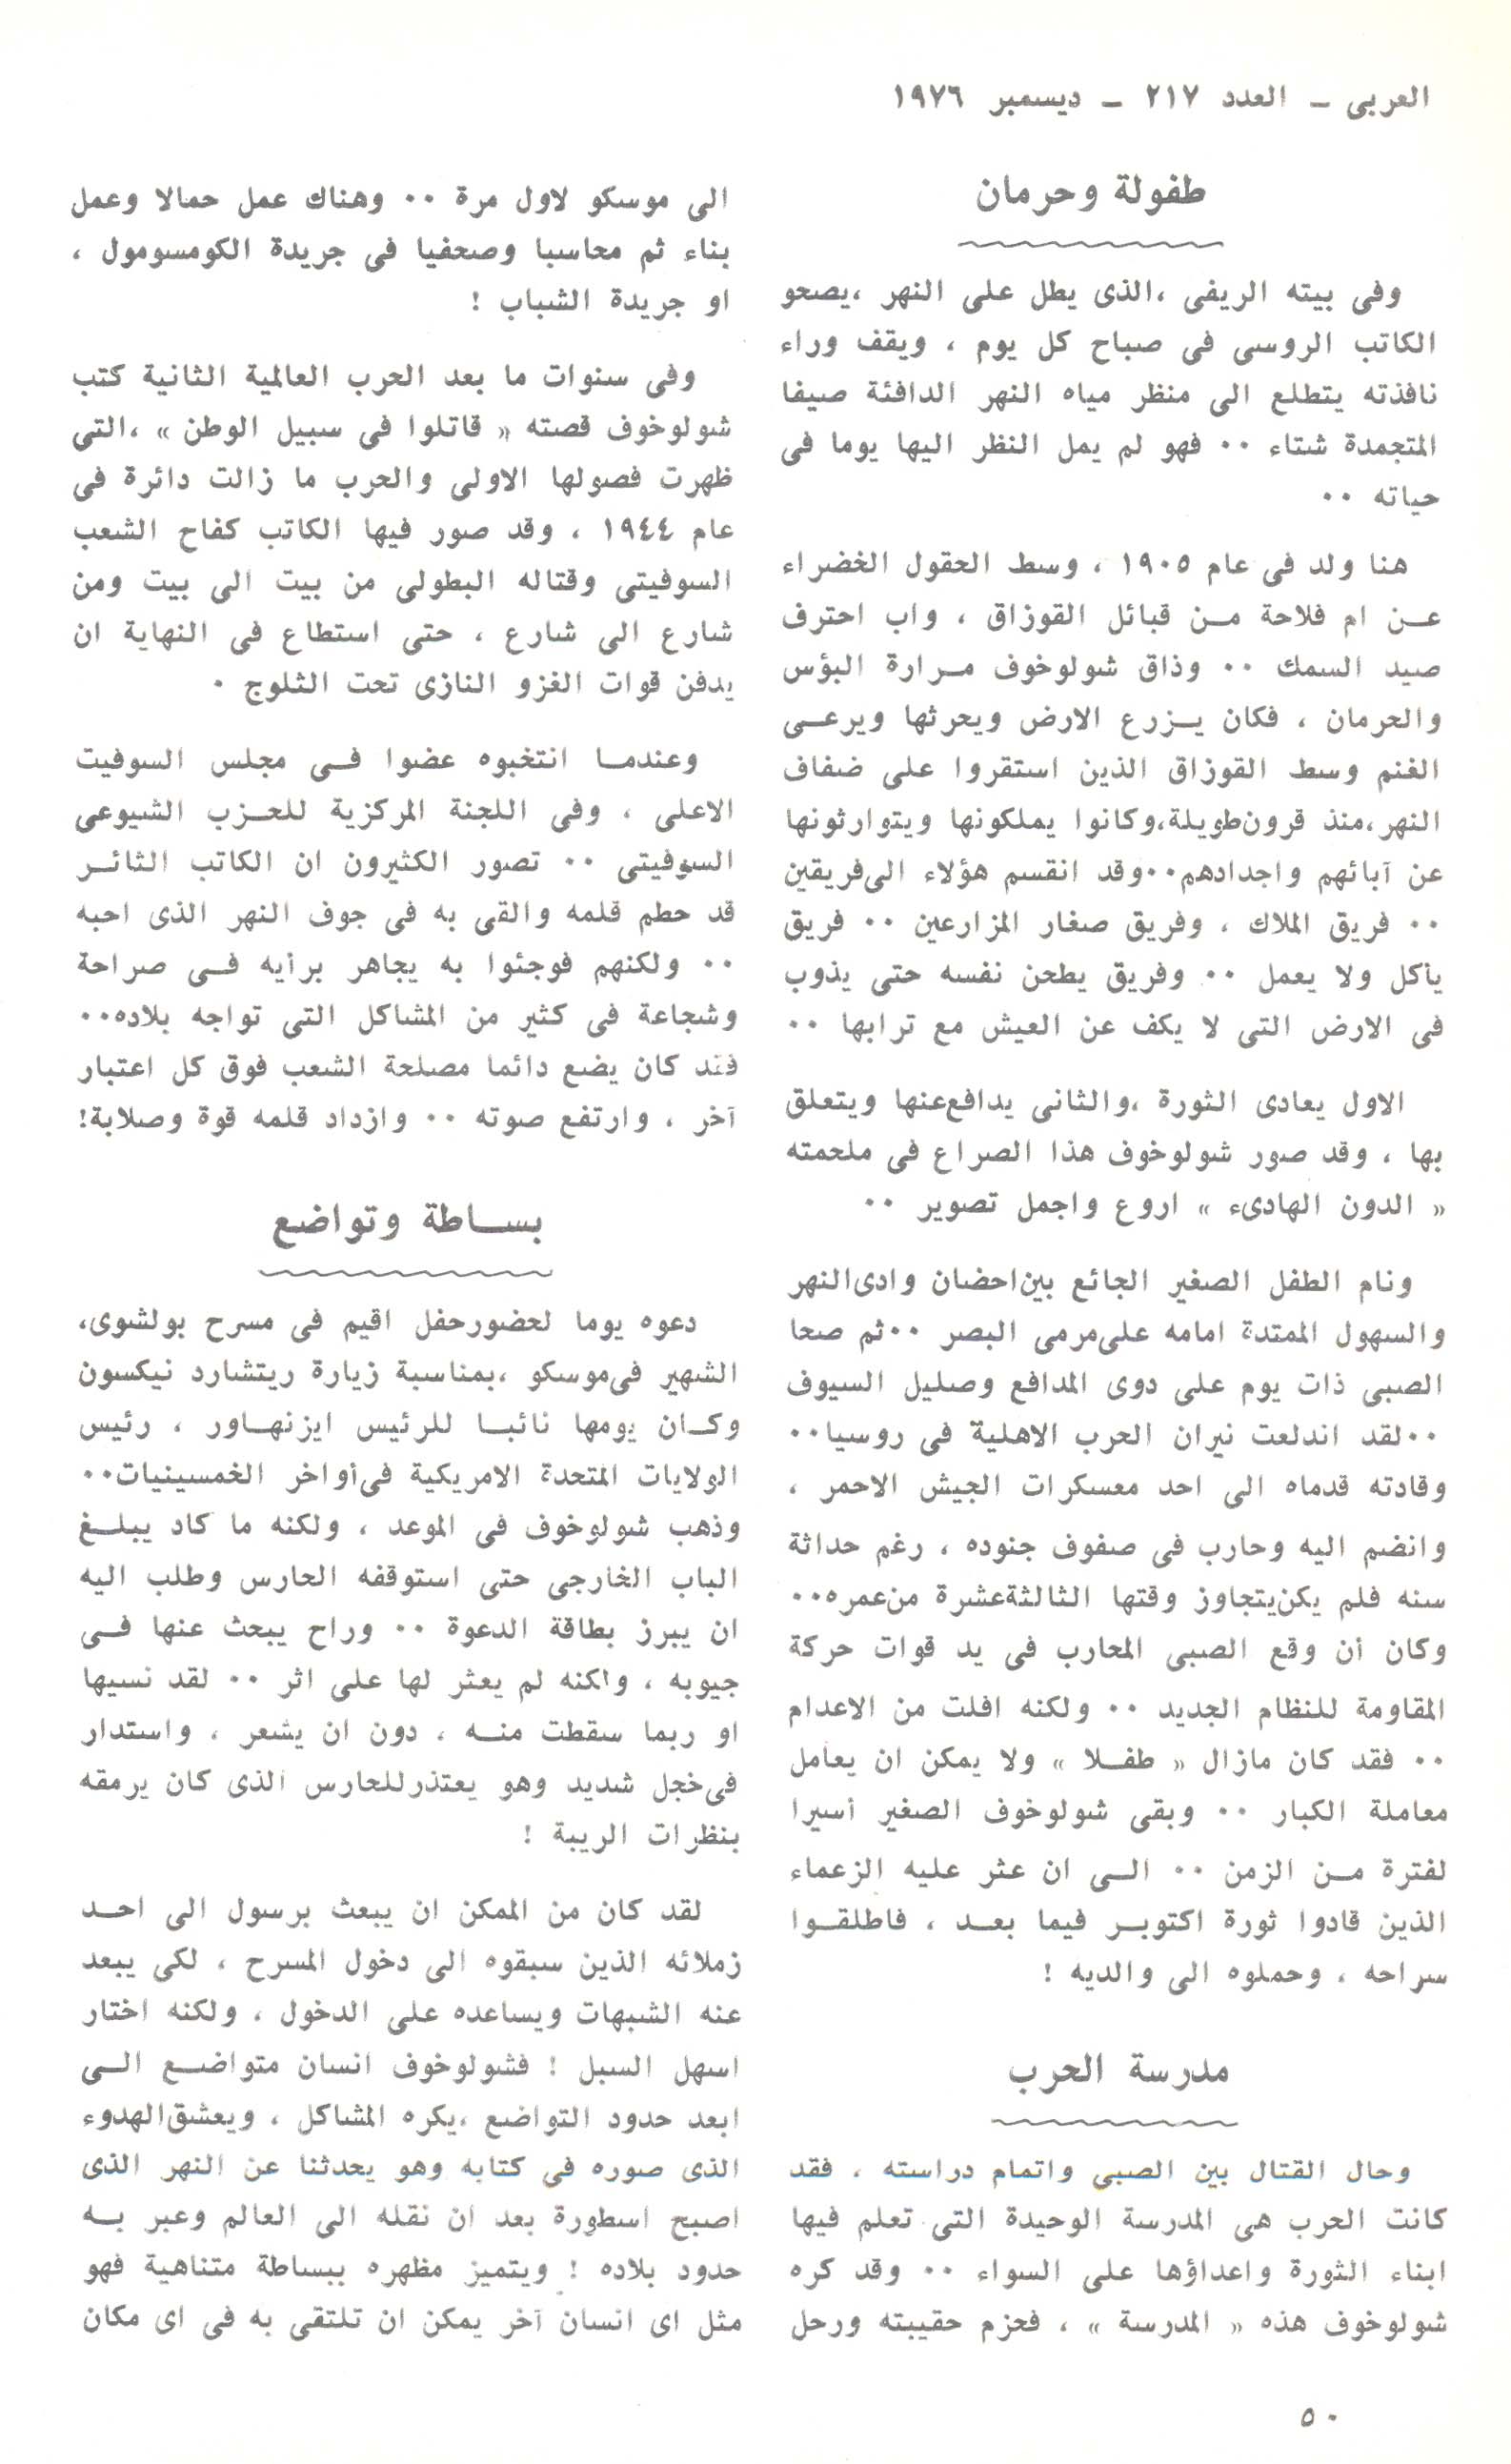 العربى – العدد ٢١٧ – ديسمبر ١٩٧٦
طفولة وحرمان
وفى بيته الريفى ،الذى يطل على النهر ،يصحو
الكاتب الروسى فى صباح كل يوم ، ويقف وراء
نافذته يتطلع الى منظر مياه النهر الدافئة صيفا
المتجمدة شتاء ٠٠ فهو لم يمل النظر اليها يوما فى
حياته ٠٠
هنا ولد فى عام ١٩٠٥ ، وسط الحقول الخضراء
عن ام فلاحة من قبائل القوزاق ، واب احترف
صيد السمك ٠٠ وذاق شولوخوف مرارة البؤس
والحرمان ، فكان يزرع الارض ويحرثها ويرعى
الغنم وسط القوزاق الذين استقروا على ضفاف
النهر،منذ قرون طويلة،وكانوا يملكونها ويتوارثونها
عن آبائهم واجدادهم٠٠وقد انقسم هؤلاء الى فريقين
٠٠ فريق الملاك ، وفريق صغار المزارعين ٠٠ فريق
يأكل ولا يعمل ٠٠ وفريق يطحن نفسه حتى يذوب
فى الارض التى لا يكف عن العيش مع ترابها ٠٠
الاول يعادى الثورة ،والثانى يدافع عنها ويتعلق
بها ، وقد صور شولوخوف هذا الصراع فى ملحمته
« الدون الهادىء » اروع واجمل تصوير ٠٠
ونام الطفل الصغير الجائع بين احضان وادى النهر
والسهول الممتدة امامه على مرمى البصر ٠٠ثم صحا
الصبى ذات يوم على دوى المدافع وصليل السيوف
٠٠لقد اندلعت نيران الحرب الاهلية فى روسيا٠٠
وقادته قدماه الى احد معسكرات الجيش الاحمر ،
وانضم اليه وحارب فى صفوف جنوده ، رغم حداثة
سنه فلم يكن يتجاوز وقتها الثالثة عشرة من عمره٠٠
وكان أن وقع الصبى المحارب فى يد قوات حركة
المقاومة للنظام الجديد ٠٠ ولكنه افلت من الاعدام
٠٠ فقد كان مازال « طفلا » ولا يمكن ان يعامل
معاملة الكبار ٠٠ وبقى شولوخوف الصغير أسيرا
لفترة من الزمن ٠٠ الى ان عثر عليه الزعماء
الذين قادوا ثورة اكتوبر فيما بعد ، فاطلقوا
سراحه ، وحملوه الى والديه !
مدرسة الحرب
وحال القتال بين الصبى واتمام دراسته ، فقد
كانت الحرب هى المدرسة الوحيدة التى تعلم فيها
ابناء الثورة واعداؤها على السواء ٠٠ وقد كره
شولوخوف هذه « المدرسة » ، فحزم حقيبته ورحل
الى موسكو لاول مرة ٠٠ وهناك عمل حمالا وعمل
بناء ثم محاسبا وصحفيا فى جريدة الكومسومول ،
او جريدة الشباب !
وفى سنوات ما بعد الحرب العالمية الثانية كتب
شولوخوف قصته « قاتلوا فى سبيل الوطن » ،التى
ظهرت فصولها الاولى والحرب ما زالت دائرة فى
عام ١٩٤٤ ، وقد صور فيها الكاتب كفاح الشعب
السوفيتى وقتاله البطولى من بيت الى بيت ومن
شارع الى شارع ، حتى استطاع فى النهاية ان
يدفن قوات الغزو النازى تحت الثلوج ٠
وعندما انتخبوه عضوا فى مجلس السوفيت
الاعلى ، وفى اللجنة المركزية للحزب الشيوعى
السوفيتى ٠٠ تصور الكثيرون ان الكاتب الثائر
قد حطم قلمه والقى به فى جوف النهر الذى احبه
٠٠ ولكنهم فوجئوا به يجاهر برأيه فى صراحة
وشجاعة فى كثير من المشاكل التى تواجه بلاده٠٠
فقد كان يضع دائما مصلحة الشعب فوق كل اعتبار
آخر ، وارتفع صوته ٠٠ وازداد قلمه قوة وصلابة!
بساطة وتواضع
دعوه يوما لحضور حفل اقيم فى مسرح بولشوى،
الشهير فى موسكو ،بمناسبة زيارة ريتشارد نيكسون
وكان يومها نائبا للرئيس ايزنهاور ، رئيس
الولايات المتحدة الامريكية فى أواخر الخمسينيات٠٠
وذهب شولوخوف فى الموعد ، ولكنه ما كاد يبلغ
الباب الخارجى حتى استوقفه الحارس وطلب اليه
ان يبرز بطاقة الدعوة ٠٠ وراح يبحث عنها فى
جيوبه ، ولكنه لم يعثر لها على اثر ٠٠ لقد نسيها
او ربما سقطت منه ، دون ان يشعر ، واستدار
فى خجل شديد وهو يعتذر للحارس الذى كان يرمقه
بنظرات الريبة !
لقد كان من الممكن ان يبعث برسول الى احد
زملائه الذين سبقوه الى دخول المسرح ، لكى يبعد
عنه الشبهات ويساعده على الدخول ، ولكنه اختار
اسهل السبل ! فشولوخوف انسان متواضع الى
ابعد حدود التواضع ،يكره المشاكل ، ويعشق الهدوء
الذى صوره فى كتابه وهو يحدثنا عن النهر الذى
اصبح اسطورة بعد ان نقله الى العالم وعبر به
حدود بلاده ! ويتميز مظهره ببساطة متناهية فهو
مثل اى انسان آخر يمكن ان تلتقى به فى اى مكان
٥٠